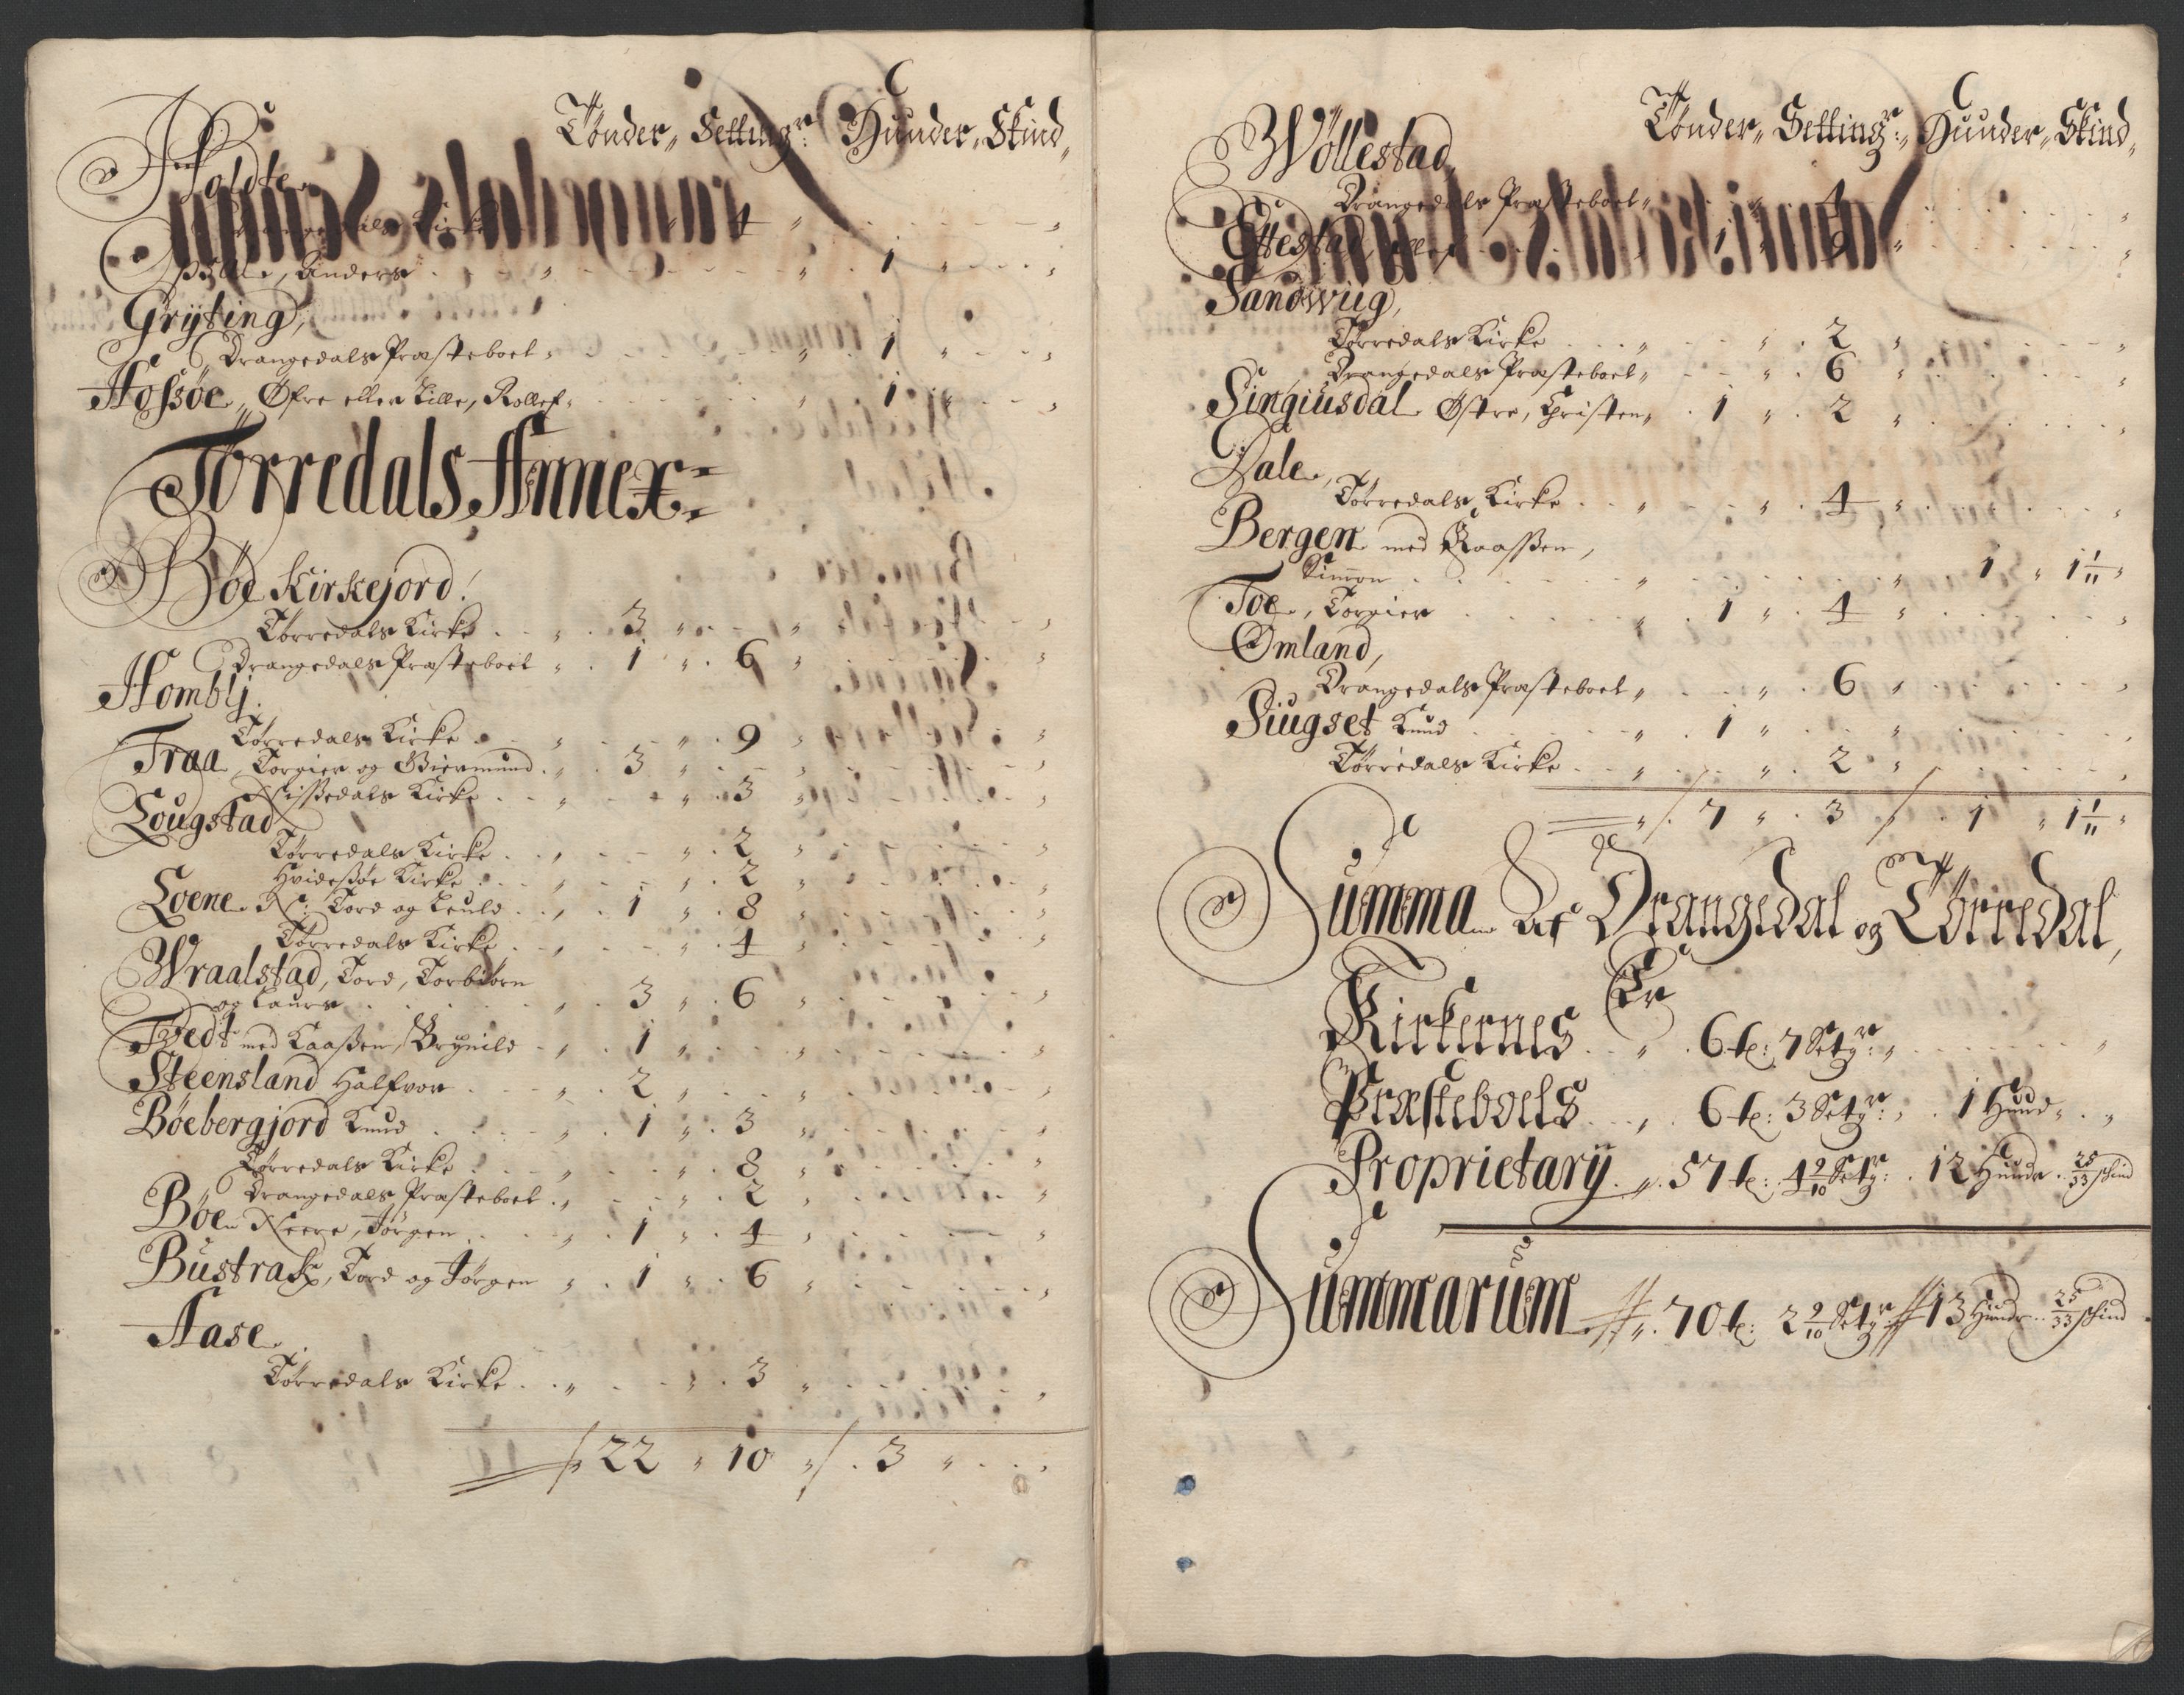 Tönder, Setting:r Hunder, Skind,
Holdte,
Drangedals Kirke 4
Anders 1
Grÿting,
Drangedals Præsteboel 1
Hossøe, Øfre eller Lille, Rollef 1
Törredals Annex
Böe Kirkejord.
Törredals Kirke 3
Drangedals Præsteboel 1 6
Hombly.
Törredals Kirke 9
Traa, Torgier og Giermund 3
Nissedals Kirke 3
Lougstad
Törredals Kirke 2
Hvidesøe Kirke 2
Loene N: Tord og Leuld 1 8
Törredals Kirke 4
Wraalstad, Tord, Torbiörn
og Laurs 3 6
Tvedt med Kaassen, Brynild 1
Steensland Halfvor 2
Böebergjord Knud 1 3
Törredals Kirke 8
Drangedals Præsteboel 2
Böe Neere, Jörgen 1 4
Bustrak, Tord og Jörgen 1 6
Aase.
Törredals Kirke 3
22 10 3
Tönder, Setting:r Hunder, Skind,
Wöllestad,
Drangedals Præsteboel 4
Ettestad, 1 9
Sandwiig,
Törredals Kirke 2
Drangedals Præsteboel 6
Singiusdal Østre, Christen 1 2
Dale,
Törredals Kirke 4
Bergen med Kaassen,
Simon 1 1 1/11
Toe, Torgier 1 4
Omland,
Drangedals Præsteboel 6
Siugset Knud 1
Törredals Kirke 2
7 3 1 1 1/11
Summa Af Drangedal og Törredal,
Kirkernes Er 6 t: 7 Setgr:
Præsteboels 6 t: 3 Setgr: 1 Hund
Proprietarÿ 57 t: 4 9/10 Setgr: 12 Hunde 25/33 skind
Summarum 70 t: 2 9/10 Setgr 13 Hunde 25/33 skind